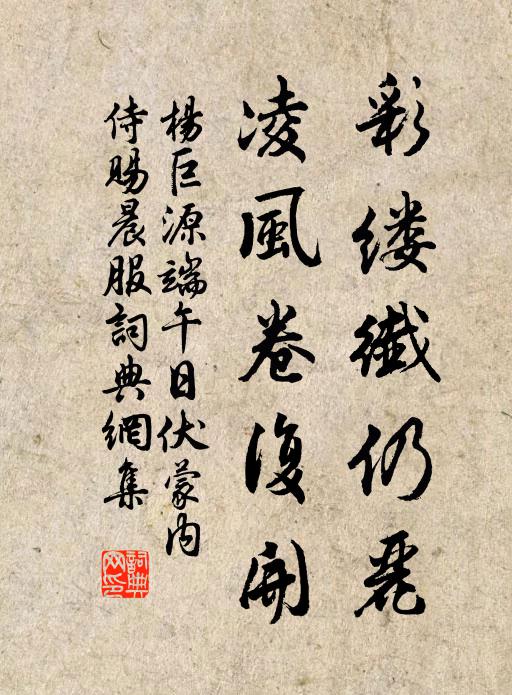 彩缕纖仍麗
凌風卷復開
楊巨源端午日伏蒙内
侍賜晨服詞典網集
詞典
网印